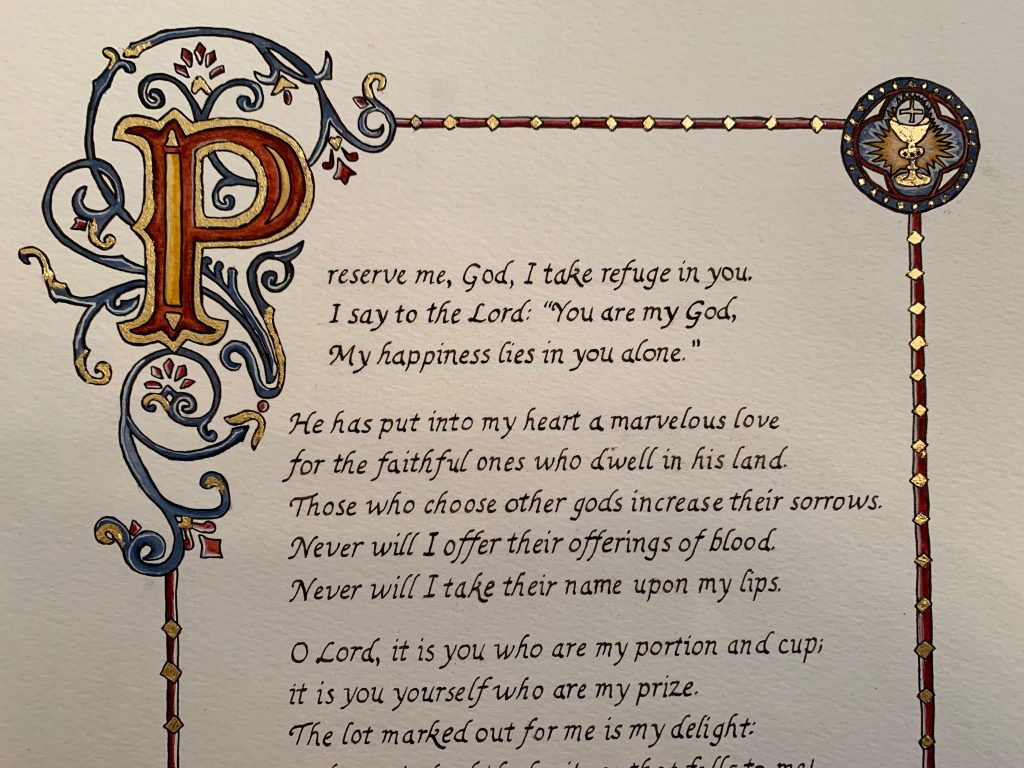 Preserve me, God, I take refuge in you.
I say to the Lord: "You are my God,
My happiness lies in you alone."
He has put into my heart a marvelous love
for the faithful ones who dwell in his land.
Those who choose other gods increase their sorrows.
Never will I offer their offerings of blood.
Never will I take their name upon my lips.
O Lord, it is you who are my portion and cup;
it is you yourself who are my prize.
The lot marked out for me is my delight:
that falls to me!